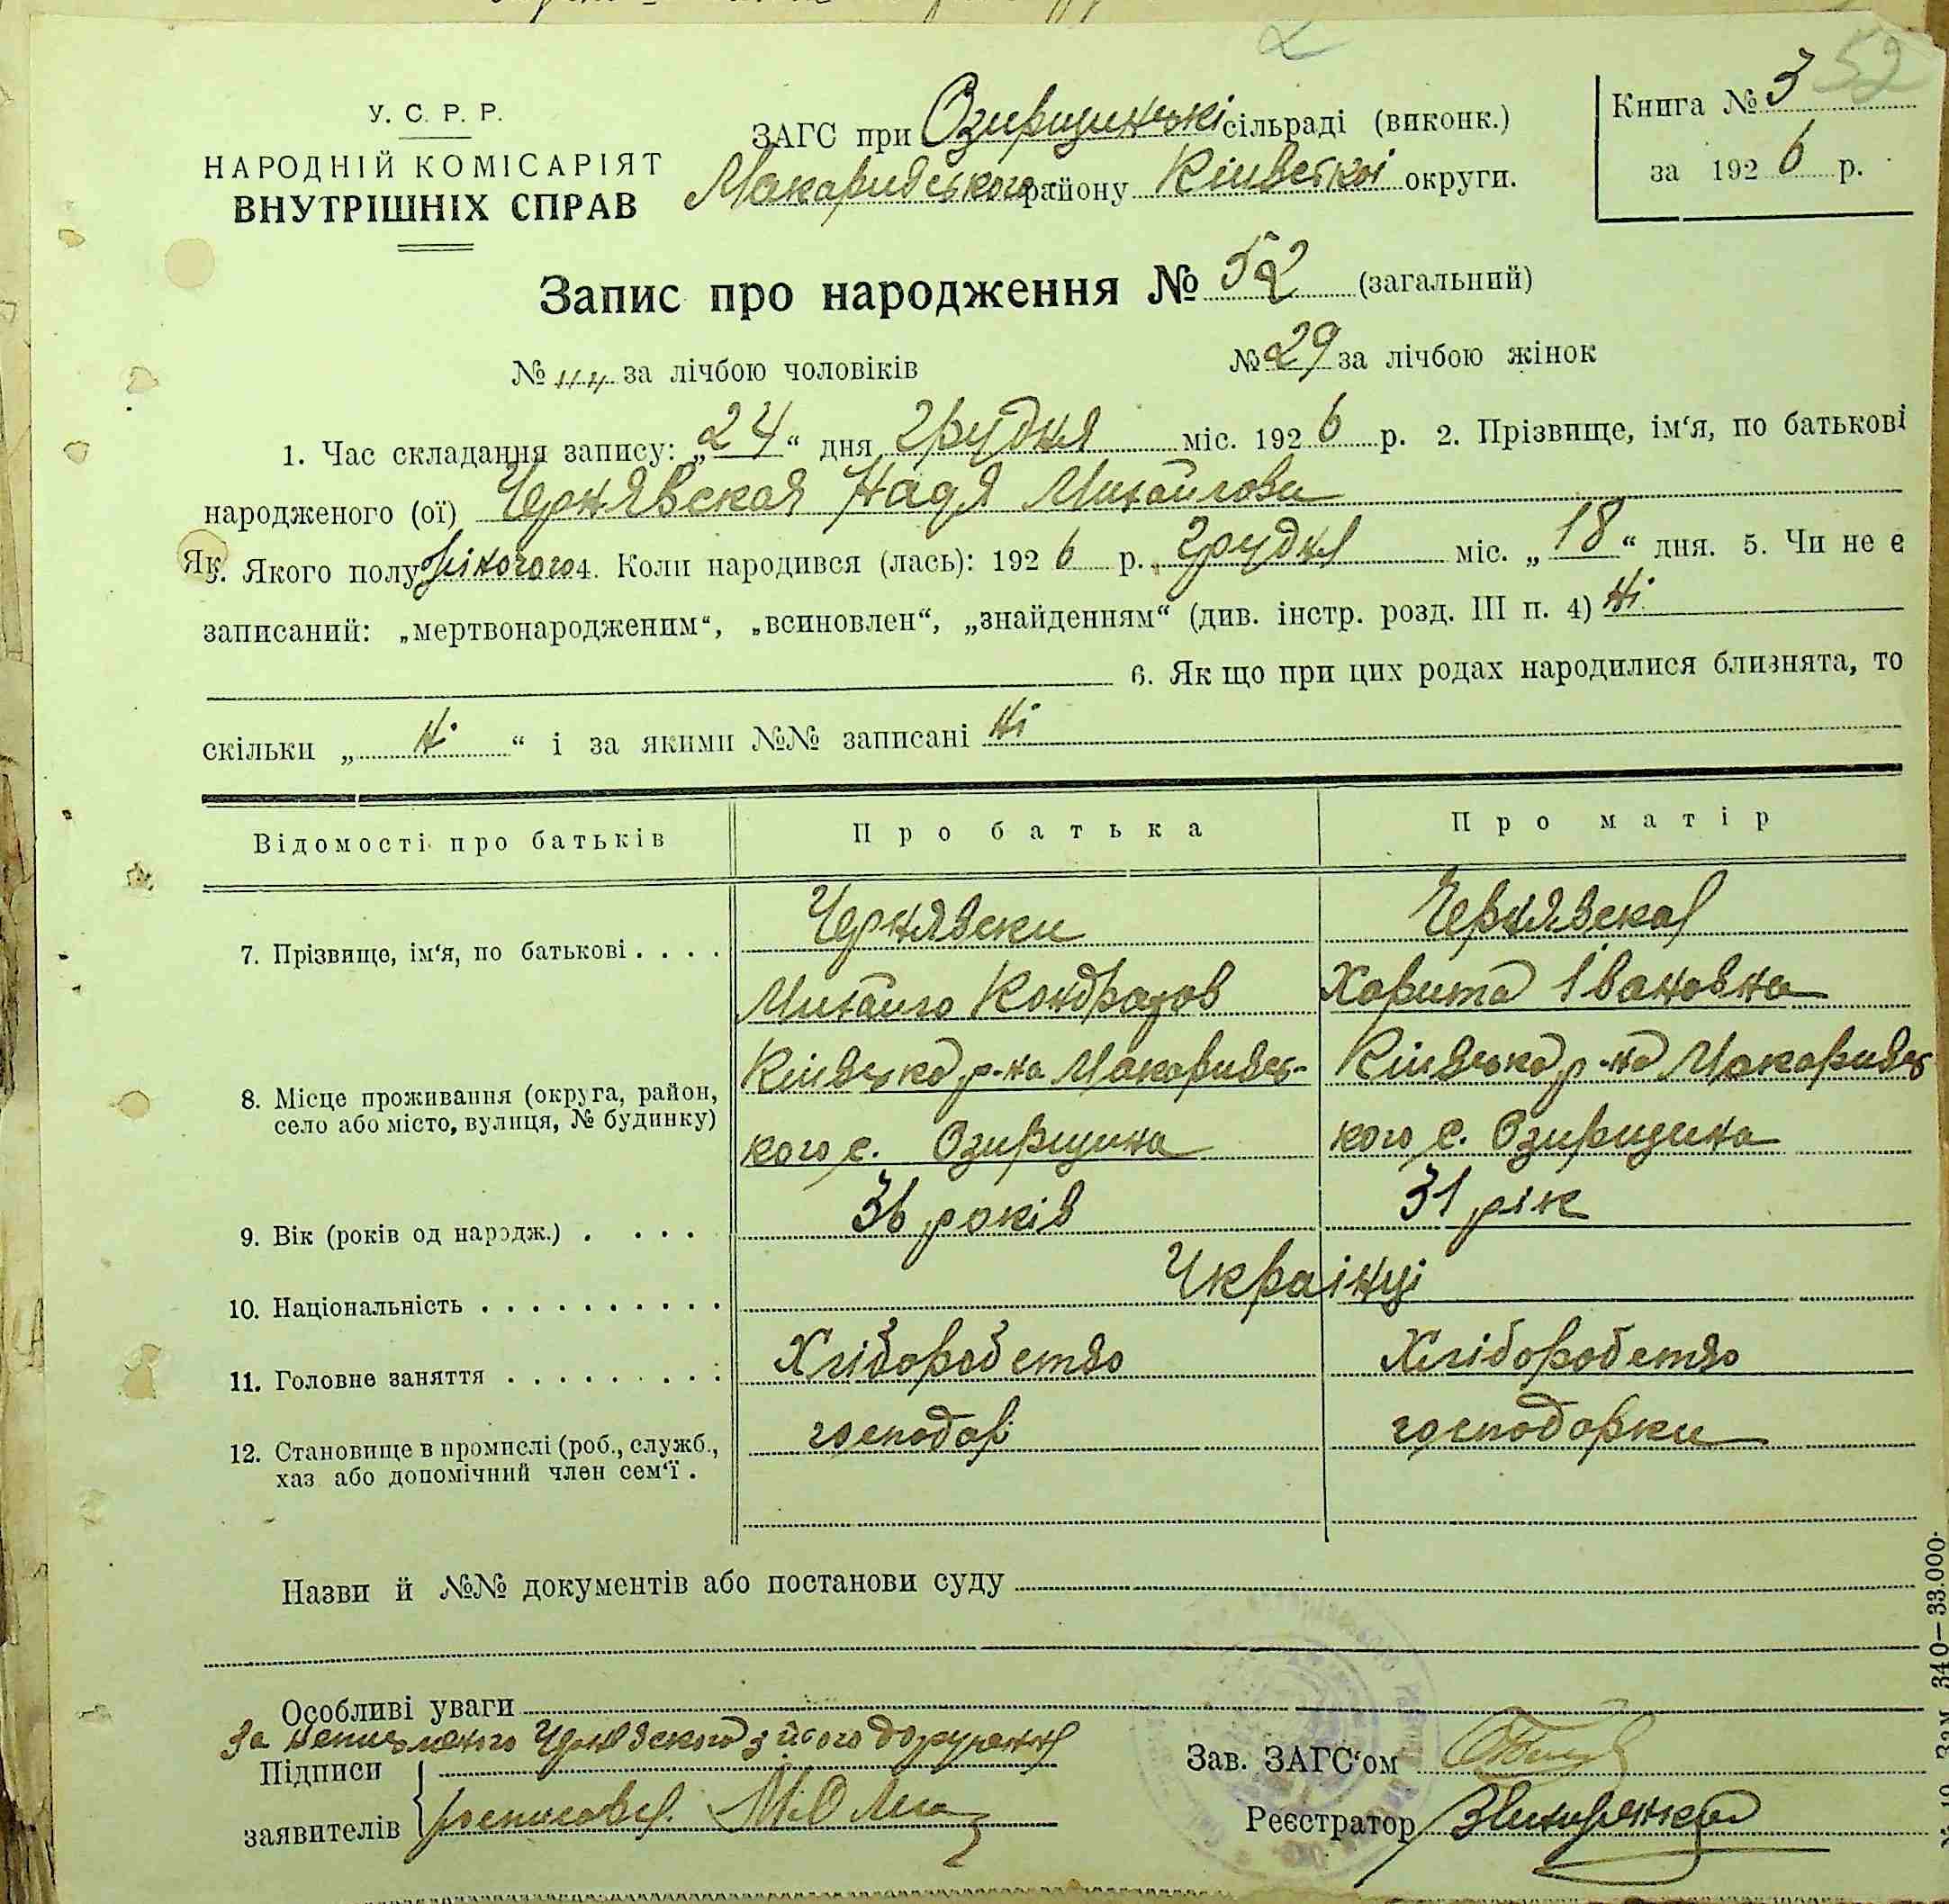 52
У. С. Р. Р.
НАРОДНІЙ КОМІСАРІЯТ
ВНУТРІШНІХ СПРАВ
ЗАГС при Озирщинські сільраді (виконк.)
Макаривського району Київскої округи.
Книга № 3
за 1926 р.
Запис про народження № 52 (загальний)
№ за лічбою чоловіків
№ 29 за лічбою жінок
1. Час складання запису: „24“ дня грудня міс. 1926 р. 2. Прізвище, ім‘я, по батькові
народженого (ої) Чернявская Надя Михайлови
Як
3. Якого полу жіночого 4. Коли народився (лась): 1926 р. грудня міс. „18“ дня. 5. Чи не є
записаний: „мертвонародженим“, „всиновлен“, „знайденням“ (див. інстр. розд. III п. 4) Ні
6. Як що при цих родах народилися близнята, то
скільки „ Ні “ і за якими №№ записані Ні
Відомості про батьків
Про батька
Про матір
7. Прізвище, ім‘я, по батькові . . . .
Чернявски
Михайло Кондратов
Чернявская
Харита Івановна
8. Місце проживання (округа, район,
село або місто, вулиця, № будинку)
Київська р-на Макаривсь-
кого с. Озирщина
Київська р-на Макаривсь
кого с. Озирщина
9. Вік (років од народж.) . . . .
36 років
31 рік
10. Національність . . . . . . . . . .
Українці
11. Головне заняття . . . . . . . . .
Хліборобство
Хліборобство
12. Становище в промислі (роб., служб.,
хаз або допомічний член сем‘ї .
господар
господарки
Назви й №№ документів або постанови суду
Особливі уваги
За неписьменого Чернявского з його доручення
Підписи
заявителів
росписався.
Зав. ЗАГС‘ом
Реєстратор
340—33.000.